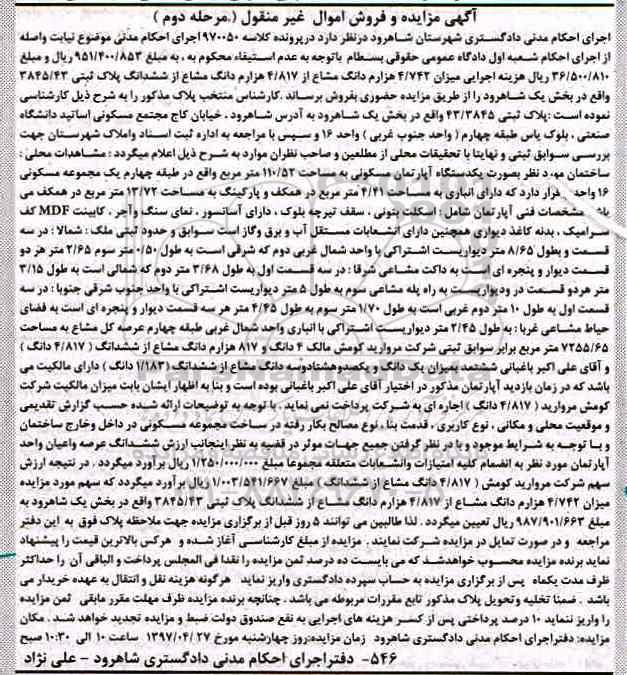 آگهی مزایده و فروش اموال غیر منقول (.مرحله دوم )
اجرای احکام مدنی دادگستری شهرستان شاهرود درنظر دارد درپرونده کلاسه ۹۷۰۰۵۰ اجرای احکام مدنی موضوع نیابت واصله
از اجرای احکام شعبه اول دادگاه عمومی حقوقی بسطام باتوجه به عدم استیفاء محکوم به ، به مبلغ ۹۵۱/۴۰۰/۸۵۳ ریال و مبلغ
۳۶/۵۰۰/۸۱۰ ریال هزینه اجرایی میزان ۴/۷۴۲ هزارم دانگ مشاع از ۴/۸۱۷ هزارم دانگ مشاع از ششدانگ پلاک ثبتی ۳۸۴۵/۴۳
واقع در بخش یک شاهرود را از طریق مزایده حضوری بفروش برساند .کارشناس منتخب پلاک مذکور را به شرح ذیل کارشناسی
نموده است :پلاک ثبتی ۴۳/۳۸۴۵ واقع در بخش یک شاهرود به آدرس شاهرود . خیابان کاج مجتمع مسکونی اساتید دانشگاه
صنعتی ، بلوک یاس طبقه چهارم ( واحد جنوب غربی ) واحد ۱۶ و سپس با مراجعه به اداره ثبت اسناد واملاک شهرستان جهت
بررسی سوابق ثبتی و نهایتا با تحقیقات محلی از مطلعین و صاحب نظران موارد به شرح ذیل اعلام میگردد : مشاهدات محلی :
ساختمان مورد نظر بصورت یکدستگاه آپارتمان مسکونی به مساحت ۱۱۰/۵۲ متر مربع واقع در طبقه چهارم یک مجموعه مسکونی
۱۶ واحد قرار دارد که دارای انباری به مساحت ۴/۴۱ متر مربع در همکف و پارکینگ به مساحت ۱۳/۷۲ متر مربع در همکف می
مشخصات فنی آپارتمان شامل : اسکلت بتونی ، سقف تیرچه بلوک ، دارای آسانسور ، نمای سنگ وآجر ، کابینت MDF کف
سرامیک ، بدنه کاغذ دیواری همچنین دارای انشعابات مستقل آب و برق وگاز است سوابق و حدود ثبتی ملک : شمالا : در سه
قسمت و بطول ۸/۶۵ متر دیواریست اشتراکی با واحد شمال غربی دوم که شرقی است به طول ۰/۵۰ متر سوم ۲/۶۵ متر هر دو
قسمت دیوار و پنجره ای است به داکت مشاعی شرقا : در سه قسمت اول به طول ۳/۶۸ متر دوم که شمالی است به طول ۳/۱۵
متر هردو قسمت در ودیواریست به راه پله مشاعی سوم به طول ۵ متر دیواریست اشتراکی با واحد جنوب شرقی جنوبا : در سه
قسمت اول به طول ۱۰ متر دوم غربی است به طول ۱/۷۰ متر سوم به طول ۴/۴۵ متر هر سه قسمت دیوار و پنجره ای است به فضای
حیاط مشاعی غربا : به طول ۲/۴۵ متر دیواریست اشتراکی با انباری واحد شمال غربی طبقه چهارم عرصه کل مشاع به مساحت
۷۲۵۵/۶۵ متر مربع برابر سوابق ثبتی شرکت مروارید کومش مالک ۴ دانگ و ۸۱۷ هزارم دانگ مشاع از ششدانگ ( ۴/۸۱۷ دانگ )
و آقای علی اکبر باغبانی ششتمد بمیزان یک دانگ و یکصدوهشتادوسه دانگ مشاع از ششدانگ (۱/۱۸۳ دانگ ) دارای مالکیت می
باشد که در زمان بازدید آپارتمان مذکور در اختیار آقای علی اکبر باغبانی بوده است و بنا به اظهار ایشان بابت میزان مالکیت شرکت
کومش مروارید ( ۴/۸۱۷ دانگ ) اجاره ای به شرکت پرداخت نمی نماید . با توجه به توضیحات ارائه شده حسب گزارش تقدیمی
و موقعیت محلی و مکانی ، نوع کاربری ، قدمت بنا ، نوع مصالح بکار رفته در ساخت مجموعه مسکونی در داخل وخارج ساختمان
و با توجه به شرایط موجود و با در نظر گرفتن جمیع جهات موثر در قضیه به نظر اینجانب ارزش ششدانگ عرصه واعیان واحد
آپارتمان مورد نظر به انضمام کلیه امتیازات وانشعابات متعلقه مجموعا مبلغ ۱/۲۵۰/۰۰۰/۰۰۰ ریال برآورد میگردد . در نتیجه ارزش
سهم شرکت مروارید کومش ( ۴/۸۱۷ دانگ مشاع از ششدانگ ) مبلغ ۱/۰۰۳/۵۴۱/۶۶۷ ریال برآورد میگردد که سهم مورد مزایده
میزان ۴/۷۴۲ هزارم دانگ مشاع از ۴/۸۱۷ هزارم دانگ مشاع از ششدانگ پلاک ثبتی ۳۸۴۵/۴۳ واقع در بخش یک شاهرود به
مبلغ ۹۸۷/۹۰۱/۶۶۳ ریال تعیین میگردد . لذا طالبین می توانند ۵ روز قبل از برگزاری مزایده جهت ملاحظه پلاک فوق به این دفتر
مراجعه و در صورت تمایل در مزایده شرکت نمایند . مزایده از مبلغ کارشناسی آغاز شده و هرکس بالاترین قیمت را پیشنهاد
نماید برنده مزایده محسوب خواهدشد که می بایست ده درصد ثمن مزایده را نقدا فی المجلس پرداخت و الباقی آن را حداکثر
ظرف مدت یکماه پس از برگزاری مزایده به حساب سپرده دادگستری واریز نماید هرگونه هزینه نقل و انتقال به عهده خریدار می
باشد . ضمنا تخلیه وتحویل پلاک مذکور تابع مقررات مربوطه می باشد . چنانچه برنده مزایده ظرف مهلت مقرر مابقی ثمن مزایده
را واریز ننماید ۱۰ درصد پرداختی پس از کسر هزینه های اجرایی به نفع صندوق دولت ضبط و مزایده تجدید خواهد شد . مکان
مزایده: دفتراجرای احکام مدنی دادگستری شاهرود زمان مزایده:روز چهارشنبه مورخ ۱۳۹۷/۰۴/۲۷ ساعت ۱۰ الی ۱۰:۳۰ صبح
۵۴۶- دفتراجرای احکام مدنی دادگستری شاهرود - علی نژاد